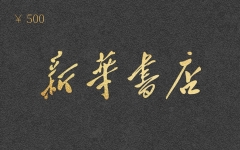 ¥ 500
新華書店